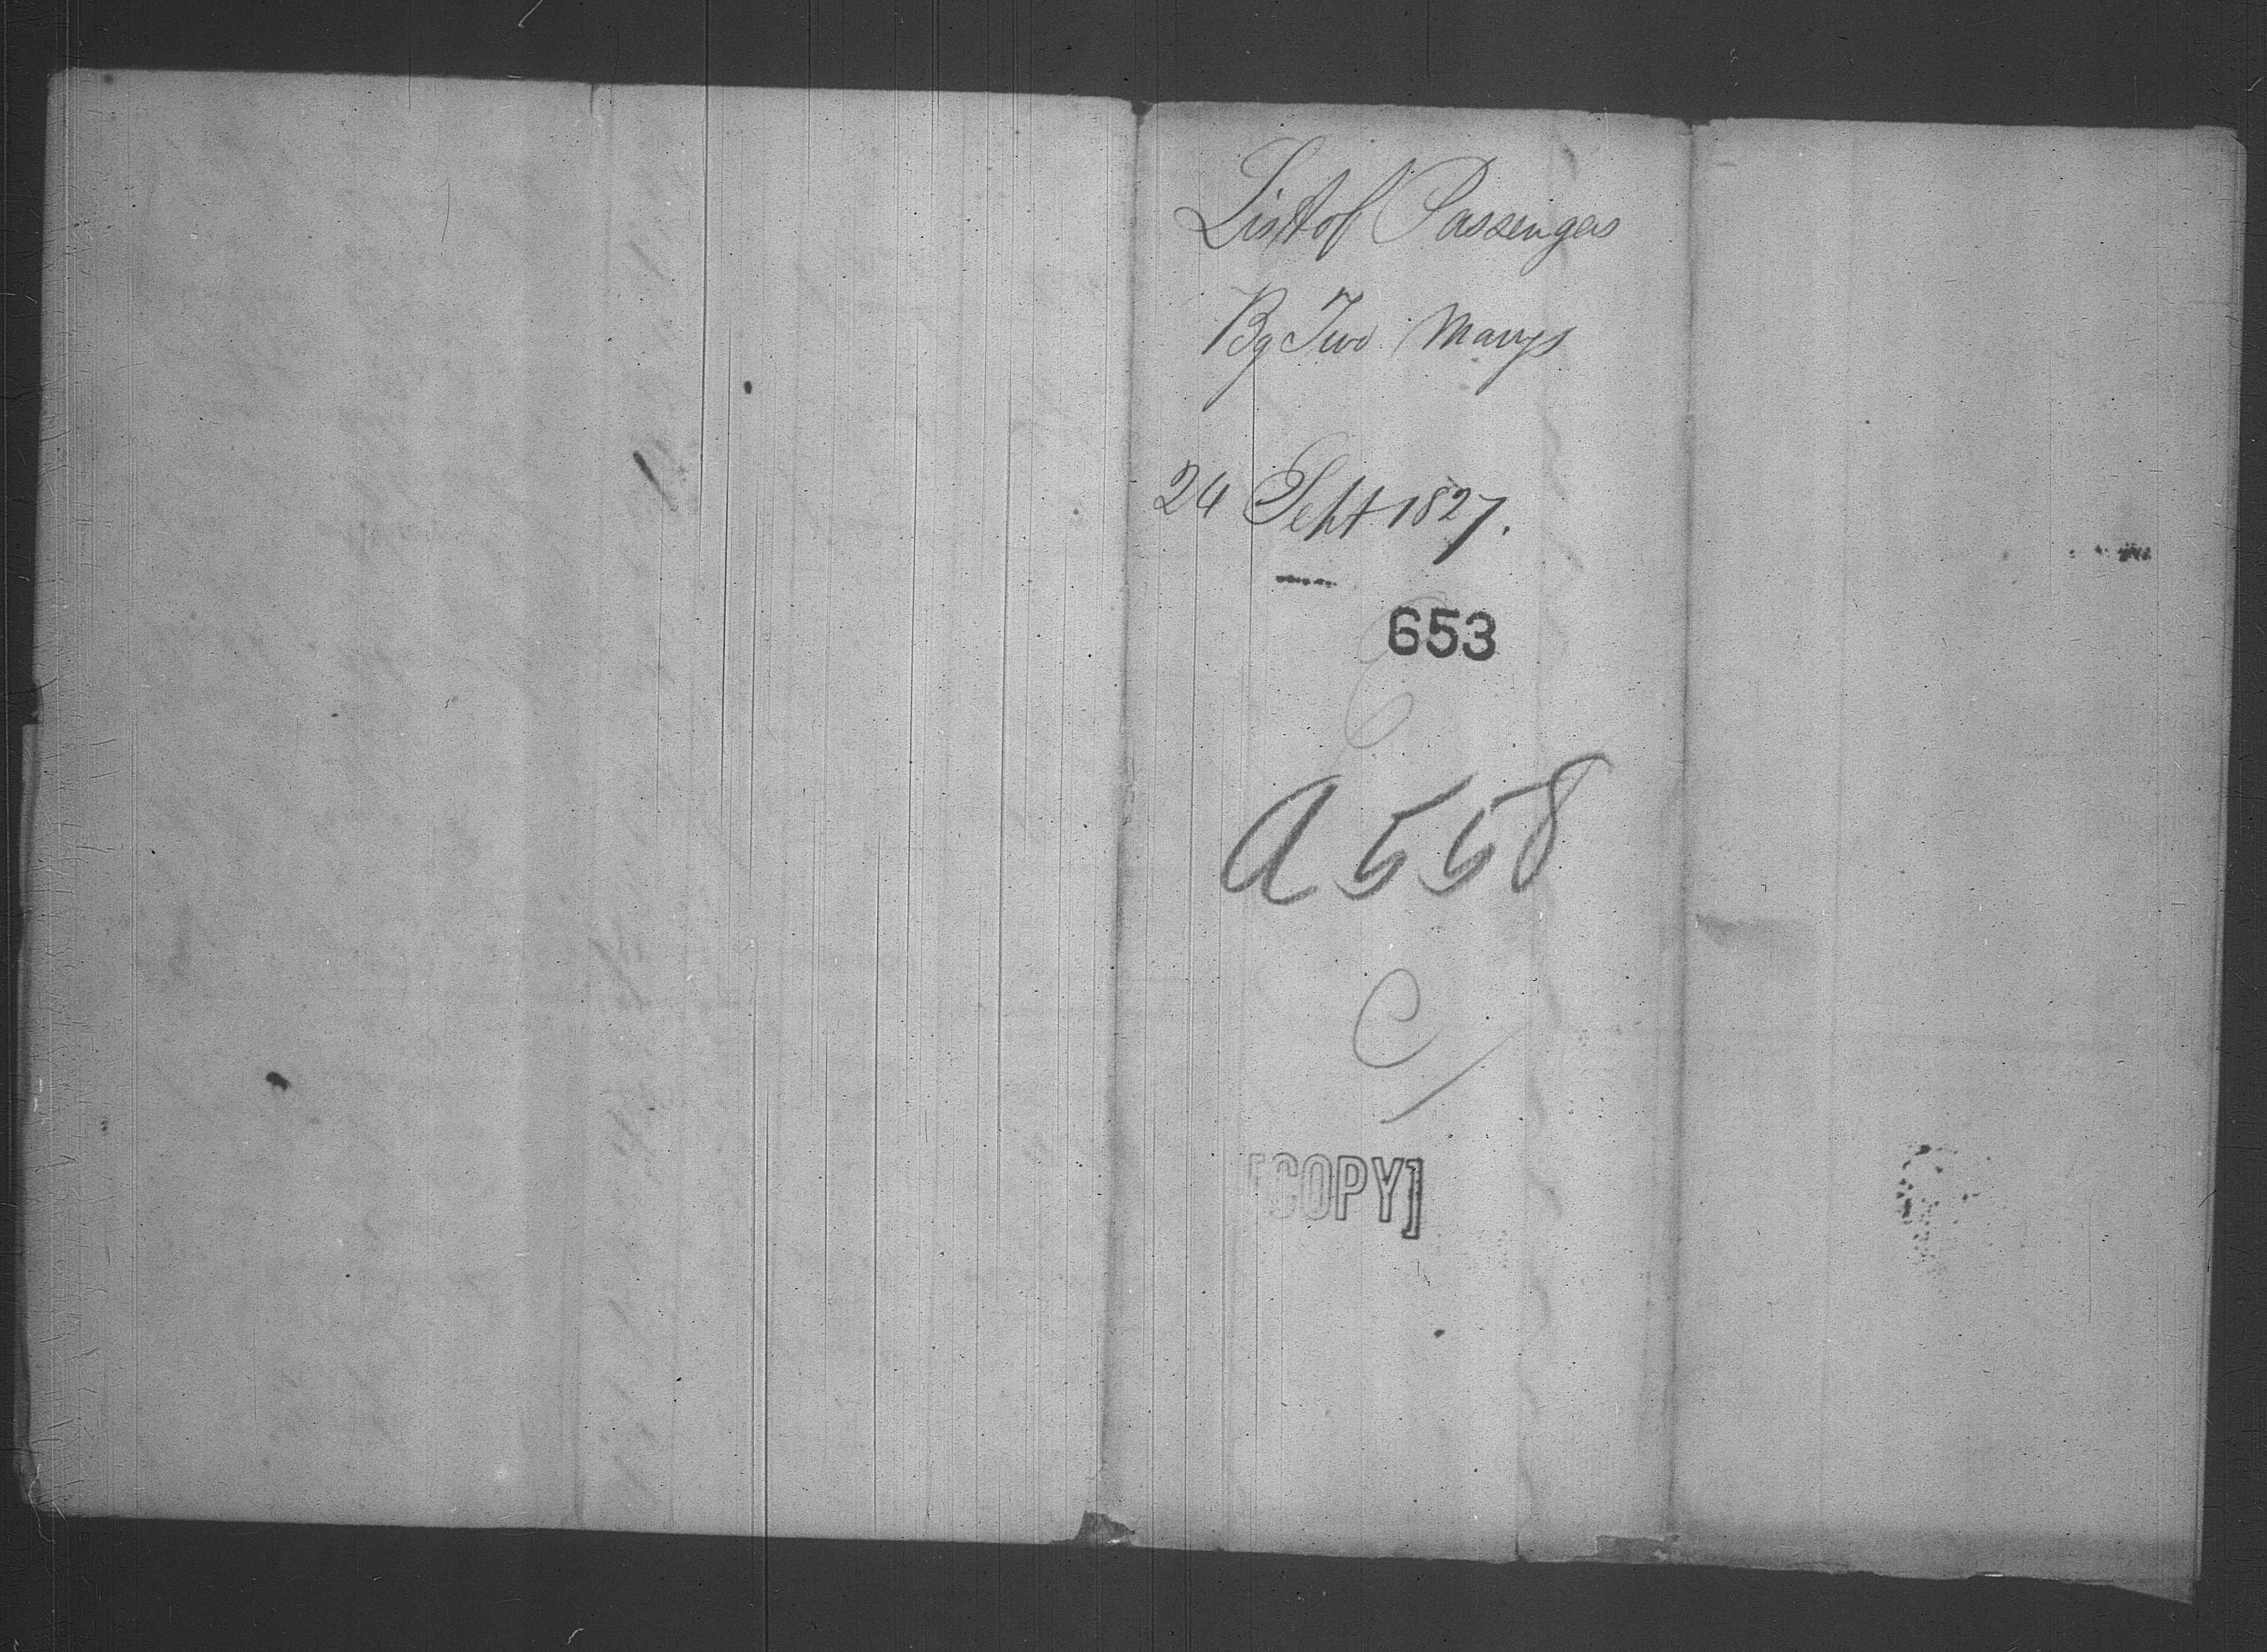 List of Passengers
Bg Two Marys
24 Sept 1827.
653
A558
C
[COPY]